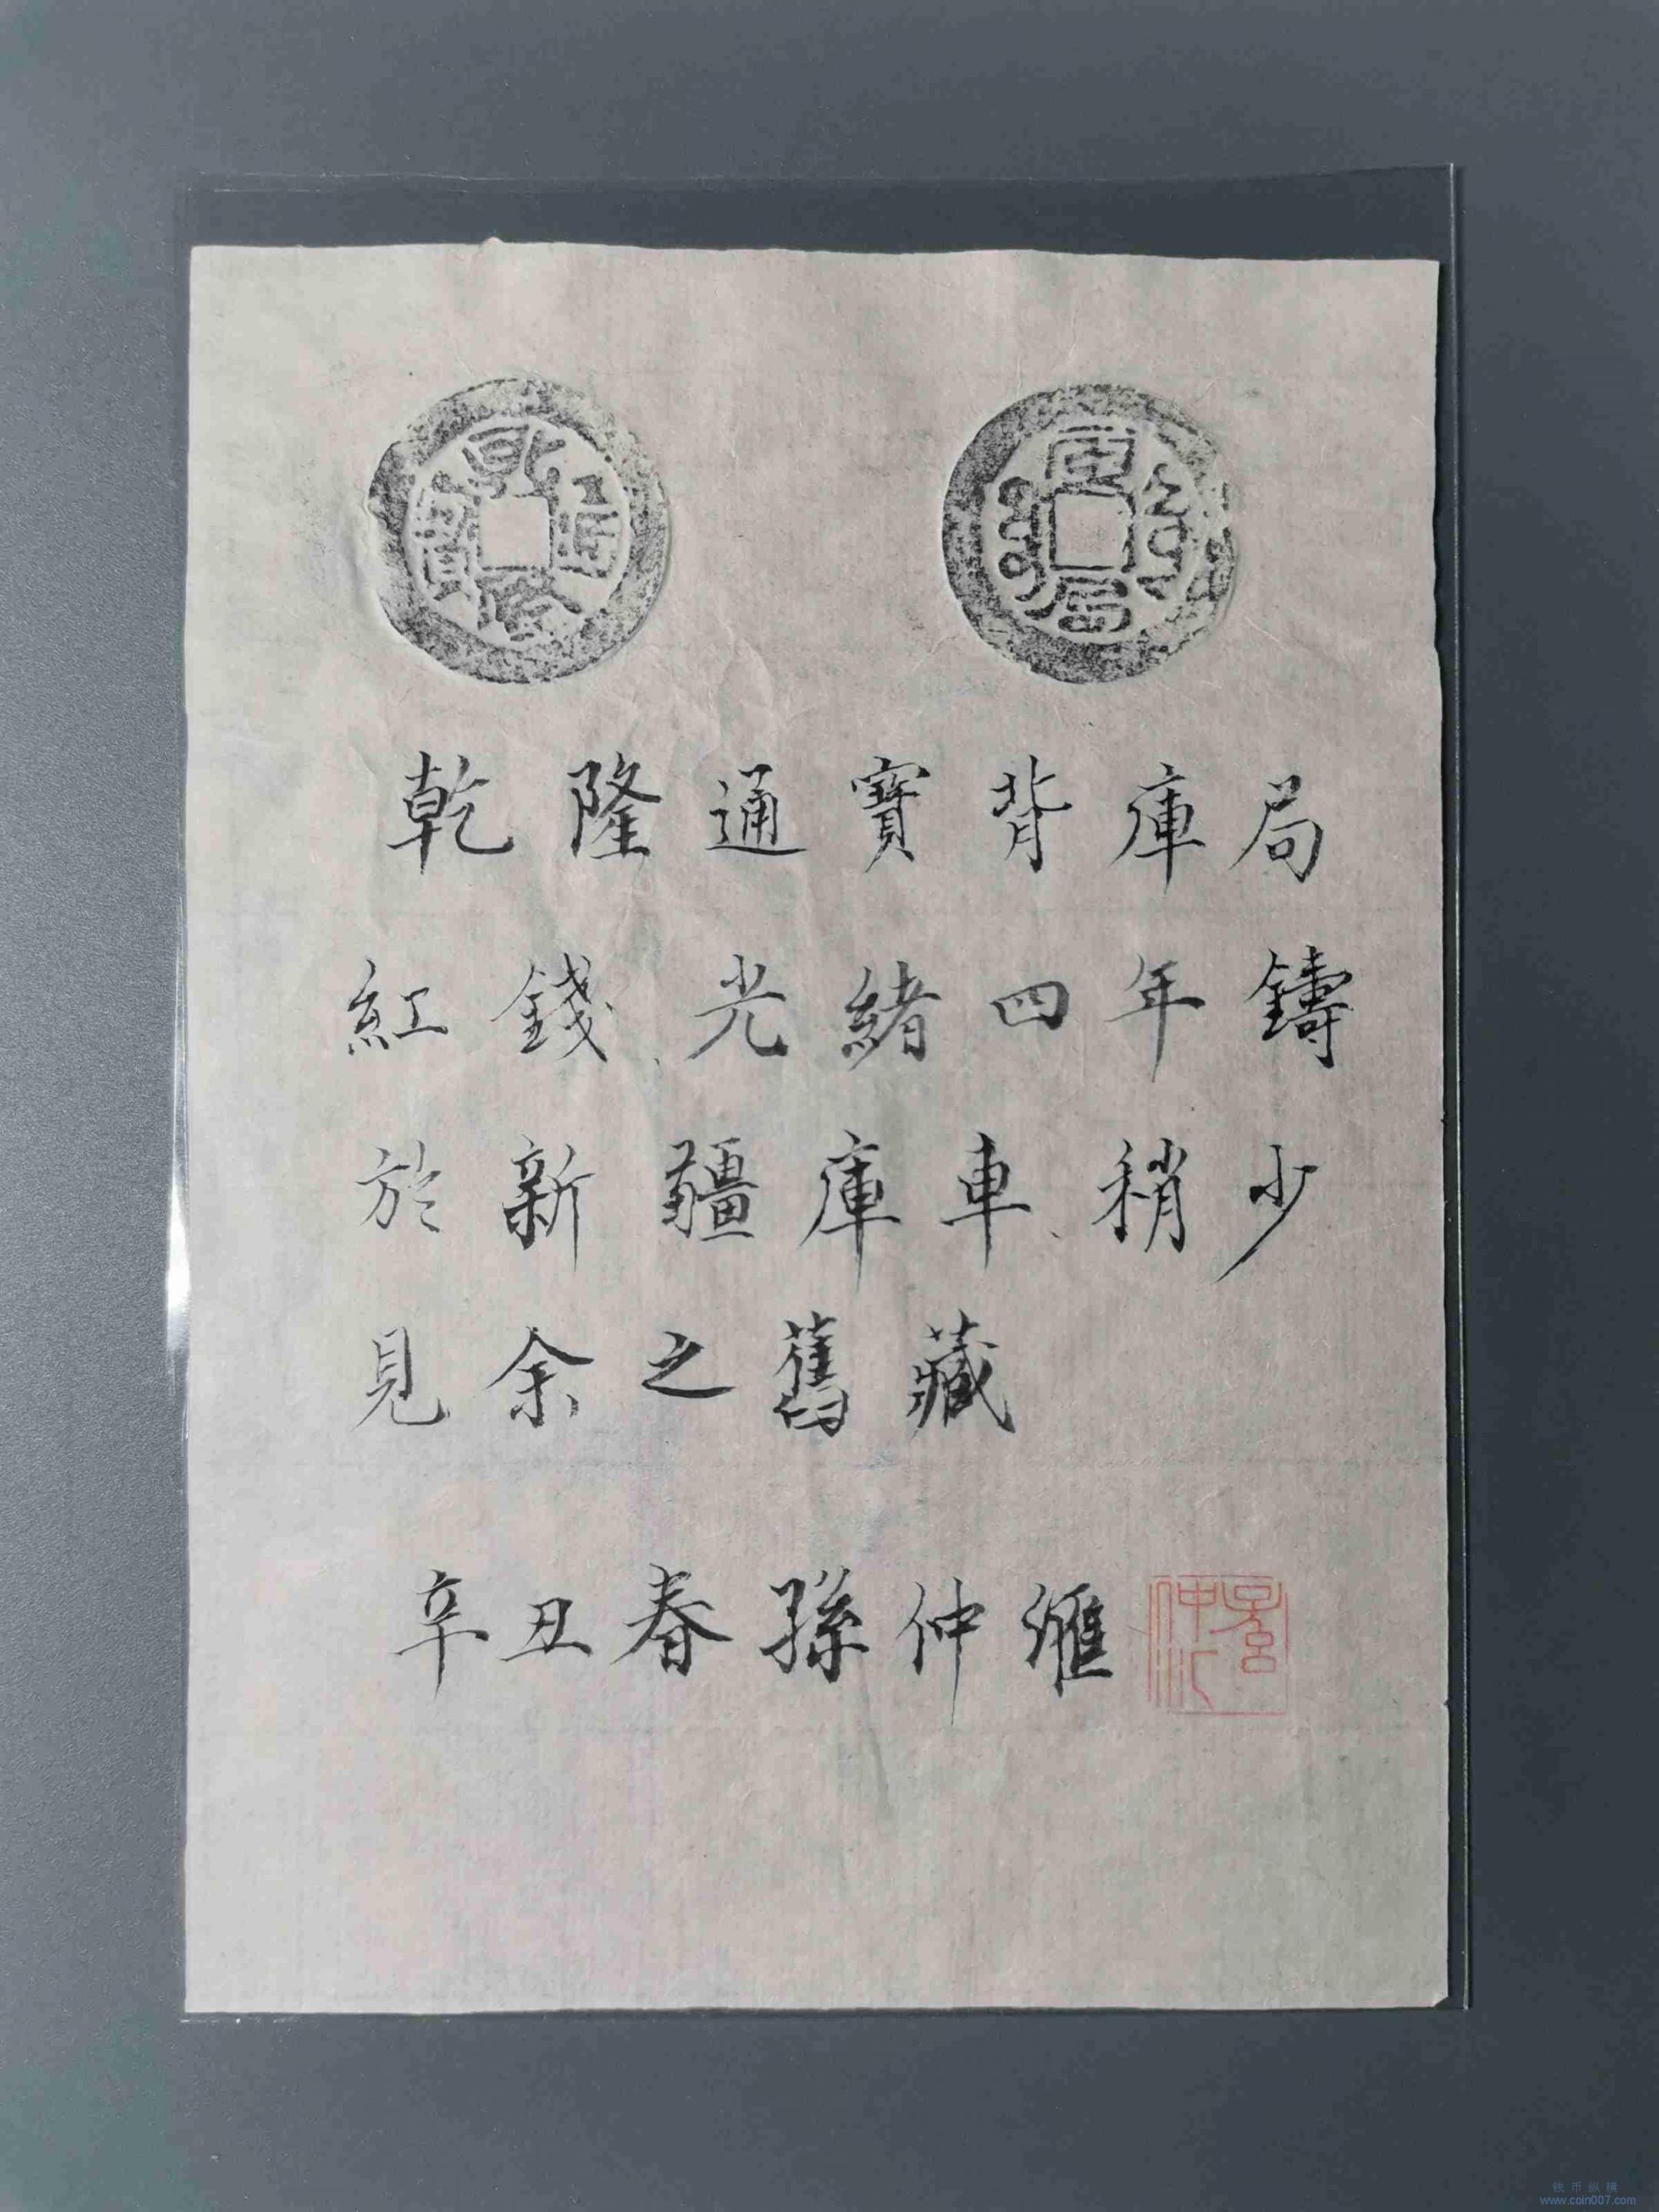 乾隆通寶
庫局
乾隆通寶背庫局
紅錢、光緒四年鑄
於新疆庫車、稍少
見余之舊藏
辛丑春孫仲滙
钱币纵横
www.coin007.com